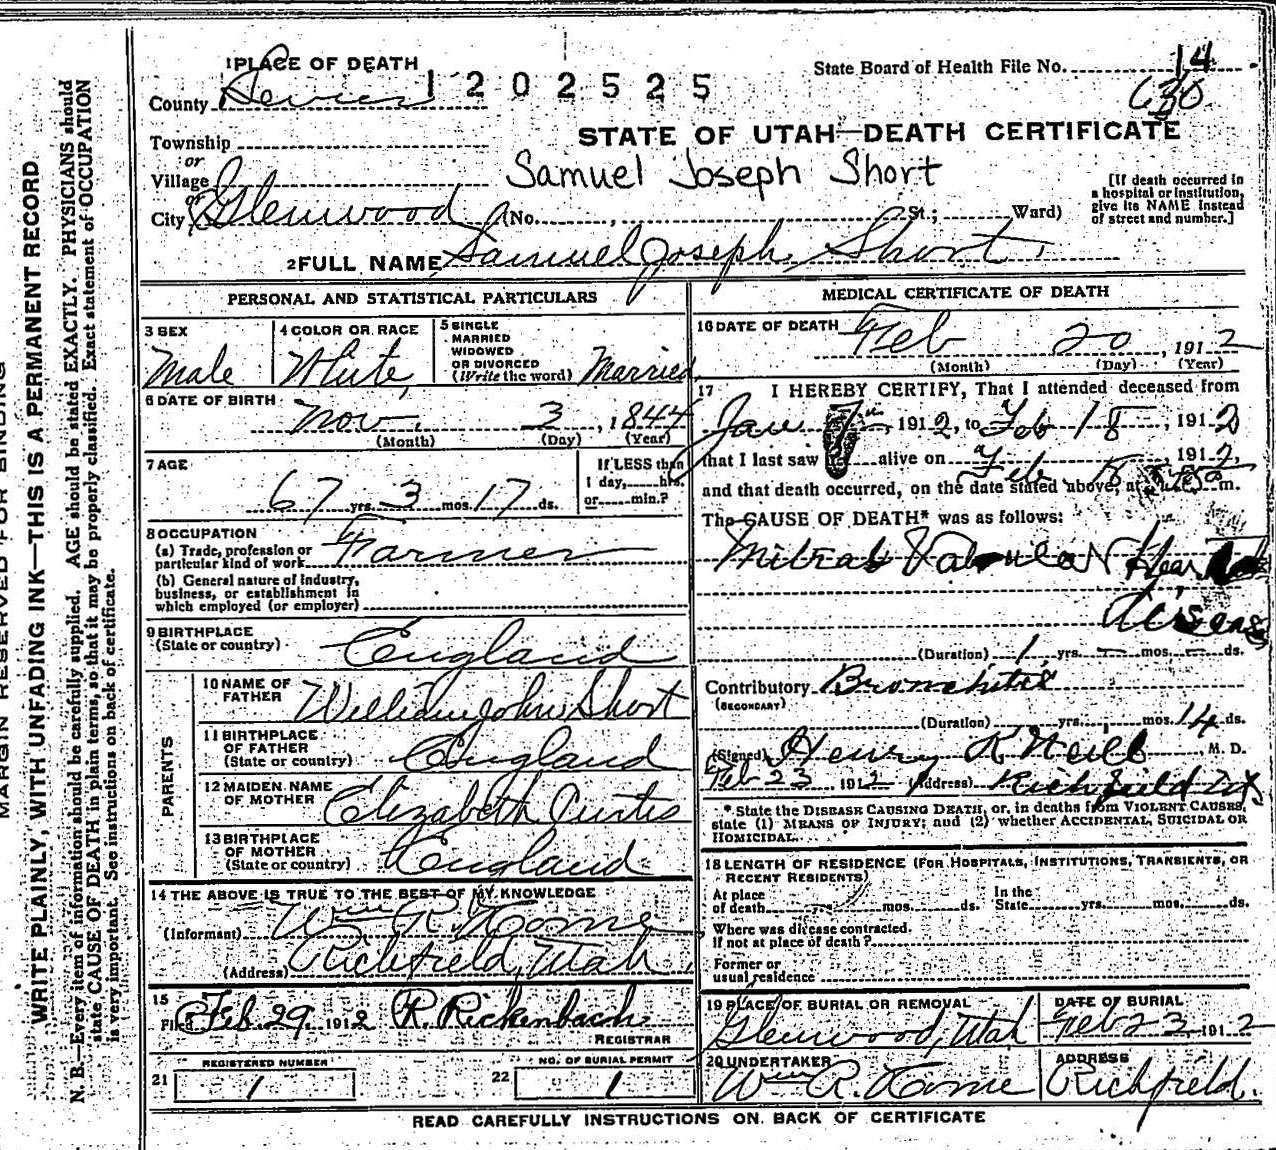 1 PLACE OF DEATH
County Sevier 1202525
State Board of Health File No. 14
630
Township
or
Village
or
City Glenwood (No. , St.; Ward)
STATE OF UTAH—DEATH CERTIFICATE
Samuel Joseph Short
[If death occurred in
a hospital or institution,
give its NAME instead
of street and number.]
2 FULL NAME Samuel Joseph Short
PERSONAL AND STATISTICAL PARTICULARS
3 SEX
Male
4 COLOR OR RACE
White
5 SINGLE
MARRIED
WIDOWED
OR DIVORCED
(Write the word) Married
6 DATE OF BIRTH
Nov. 3, 1844
(Month) (Day) (Year)
7 AGE
67 yrs. 3 mos. 17 ds.
If LESS than
1 day, hrs.
or min.?
8 OCCUPATION
(a) Trade, profession or
particular kind of work Farmer
(b) General nature of industry,
business, or establishment in
which employed (or employer)
9 BIRTHPLACE
(State or country) England
PARENTS
10 NAME OF
FATHER William John Short
11 BIRTHPLACE
OF FATHER
(State or country) England
12 MAIDEN NAME
OF MOTHER Elizabeth Curtis
13 BIRTHPLACE
OF MOTHER
(State or country) England
14 THE ABOVE IS TRUE TO THE BEST OF MY KNOWLEDGE
(Informant) Wm R.
(Address) Richfield, Utah
15
Filed Feb. 29, 1912 R. Rickenbach
REGISTRAR
REGISTERED NUMBER
21 1
NO. OF BURIAL PERMIT
22 1
MEDICAL CERTIFICATE OF DEATH
16 DATE OF DEATH Feb 20, 1912
(Month) (Day) (Year)
17 I HEREBY CERTIFY, That I attended deceased from
Jan 7, 1912, to Feb 18, 1912
that I last saw alive on Feb 18, 1912,
and that death occurred, on the date stated above, at m.
The CAUSE OF DEATH* was as follows:
Mitral Valvular Heart
disease
(Duration) 1 yrs. — mos. — ds.
Contributory Bronchitis
(SECONDARY)
(Duration) yrs. mos. 14 ds.
(Signed) Henry K Neill, M. D.
Feb 23 1912 (Address) Richfield Ut
* State the DISEASE CAUSING DEATH, or, in deaths from VIOLENT CAUSES,
state (1) MEANS OF INJURY; and (2) whether ACCIDENTAL, SUICIDAL OR
HOMICIDAL.
18 LENGTH OF RESIDENCE (FOR HOSPITALS, INSTITUTIONS, TRANSIENTS, OR
RECENT RESIDENTS)
At place
of death yrs. mos. ds.
In the
State yrs. mos. ds.
Where was disease contracted.
If not at place of death?
Former or
usual residence
19 PLACE OF BURIAL OR REMOVAL
Glenwood, Utah
DATE OF BURIAL
Feb 23 1912
20 UNDERTAKER
Wm R.
ADDRESS
Richfield.
READ CAREFULLY INSTRUCTIONS ON BACK OF CERTIFICATE
MARGIN RESERVED FOR BINDING
WRITE PLAINLY, WITH UNFADING INK—THIS IS A PERMANENT RECORD
N. B.—Every item of information should be carefully supplied. AGE should be stated EXACTLY. PHYSICIANS should
state CAUSE OF DEATH in plain terms, so that it may be properly classified. Exact statement of OCCUPATION
is very important. See instructions on back of certificate.